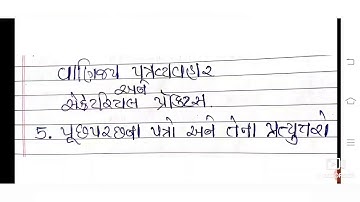 વાણિજ્ય પત્રવ્યવહાર
અને
સેક્રેટરિયલ પ્રેક્ટિસ.
5. પૂછપરછના પત્રો અને તેના પ્રત્યુત્તરો